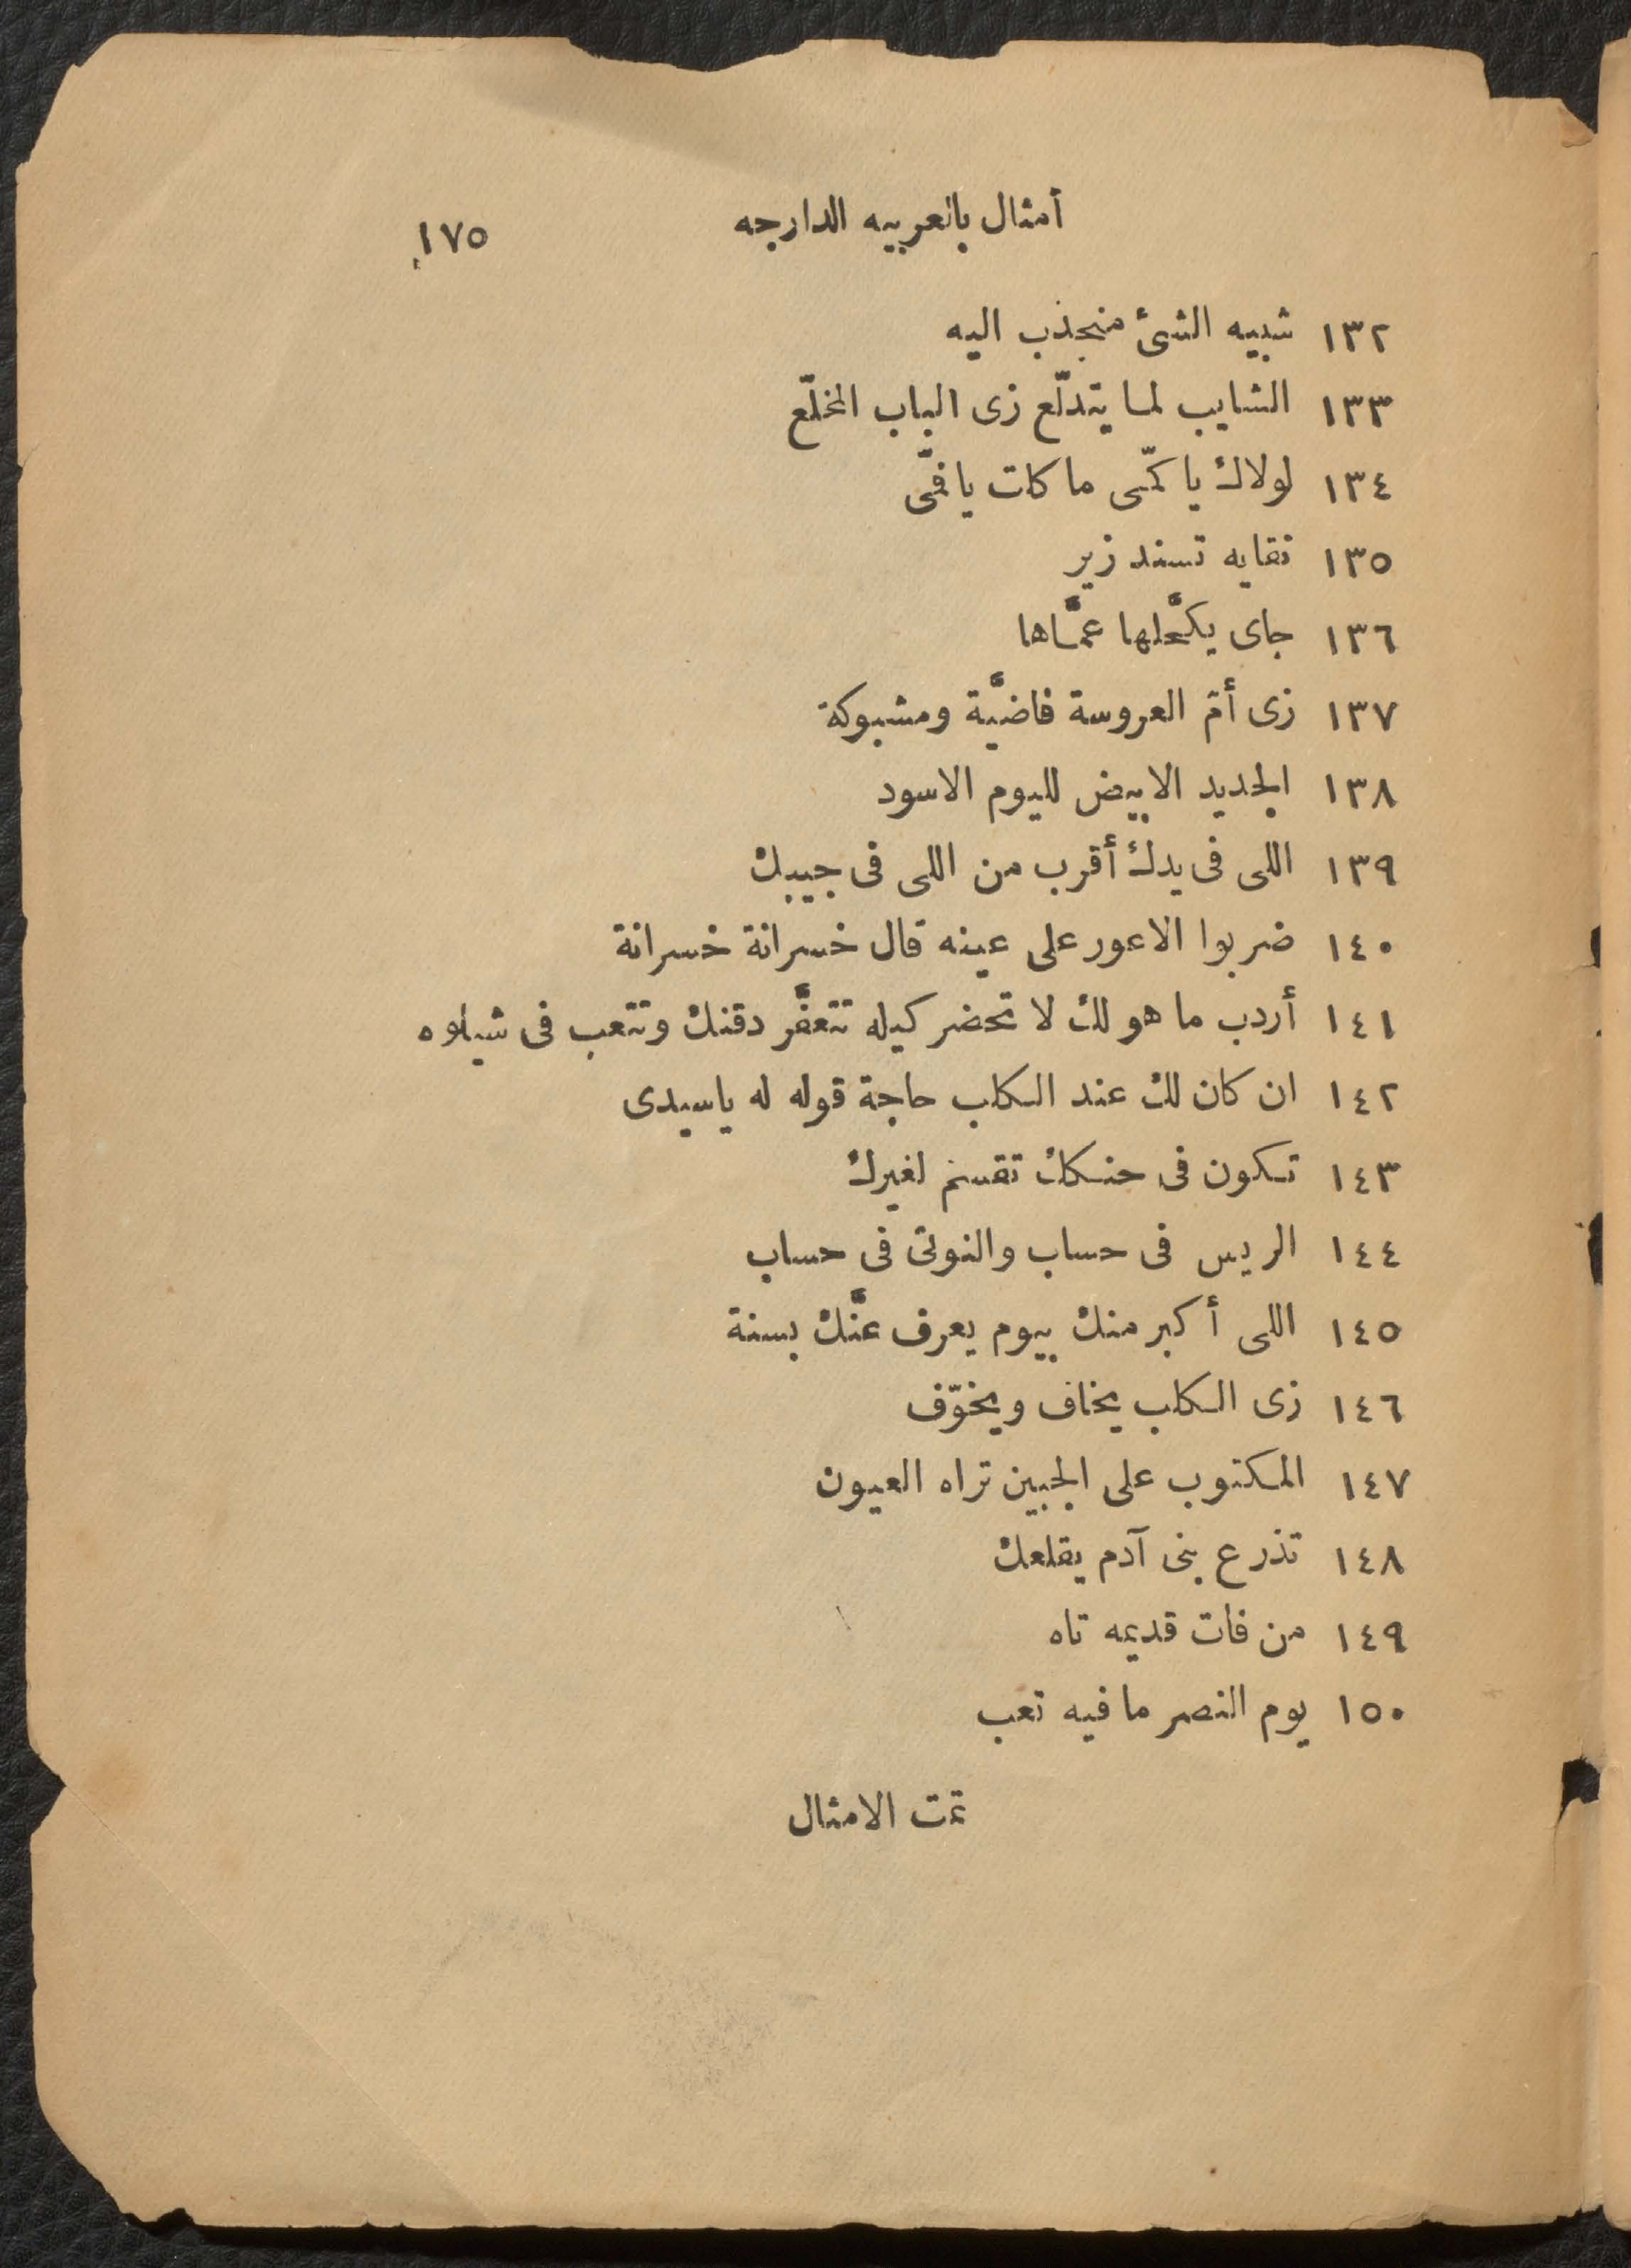 أمثال بالعربيه الدارجه ١٧٥
١٣٢ شبيه الشئ منجذب اليه
١٣٣ الشايب لما يتدلّع زى الباب المخلّع
١٣٤ لولاك يا كمّى ما كات يا فمّى
١٣٥ نقايه تسند زير
١٣٦ جاى يكحَّلها عمَّاها
١٣٧ زى أمّ العروسة فاضيَّة ومشبوكة
١٣٨ الجديد الابيض لليوم الاسود
١٣٩ اللى فى يدك أقرب من اللى فى جيبك
١٤٠ ضربوا الاعور على عينه قال خسرانة خسرانة
١٤١ أردب ما هو لك لا تحضر كيله تتعفَّر دقنك وتتعب فى شيلوه
١٤٢ ان كان لك عند الكلب حاجة قوله له ياسيدى
١٤٣ تكون فى حنكك تقسم لغيرك
١٤٤ الريس فى حساب والنوتى فى حساب
١٤٥ اللى أكبر منك بيوم يعرف عنَّك بسنة
١٤٦ زى الكلب يخاف ويخوّف
١٤٧ المكتوب على الجبين تراه العيون
١٤٨ تذرع بنى آدم يقلعك
١٤٩ من فات قديمه تاه
١٥٠ يوم النصر ما فيه تعب
تمت الامثال